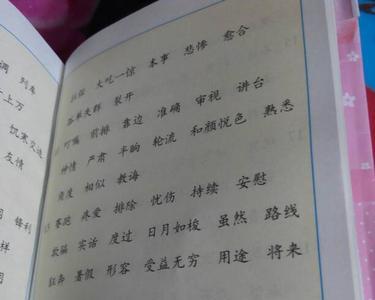 调 列车
上万
饥寒交迫
友情
锋利
样
大吃一惊 本事 悲惨 愈合
孤单失群 裂开
叮嘱 前排 靠边 准确 审视 讲台
神情 严肃 半晌 轮流 和颜悦色 熟悉
角度 相似 教诲
15 赛跑 疼爱 排除 忧伤 持续 安慰
欺骗 实话 度过 日月如梭 虽然 路线
狂奔 暑假 形容 受益无穷 用途 将来